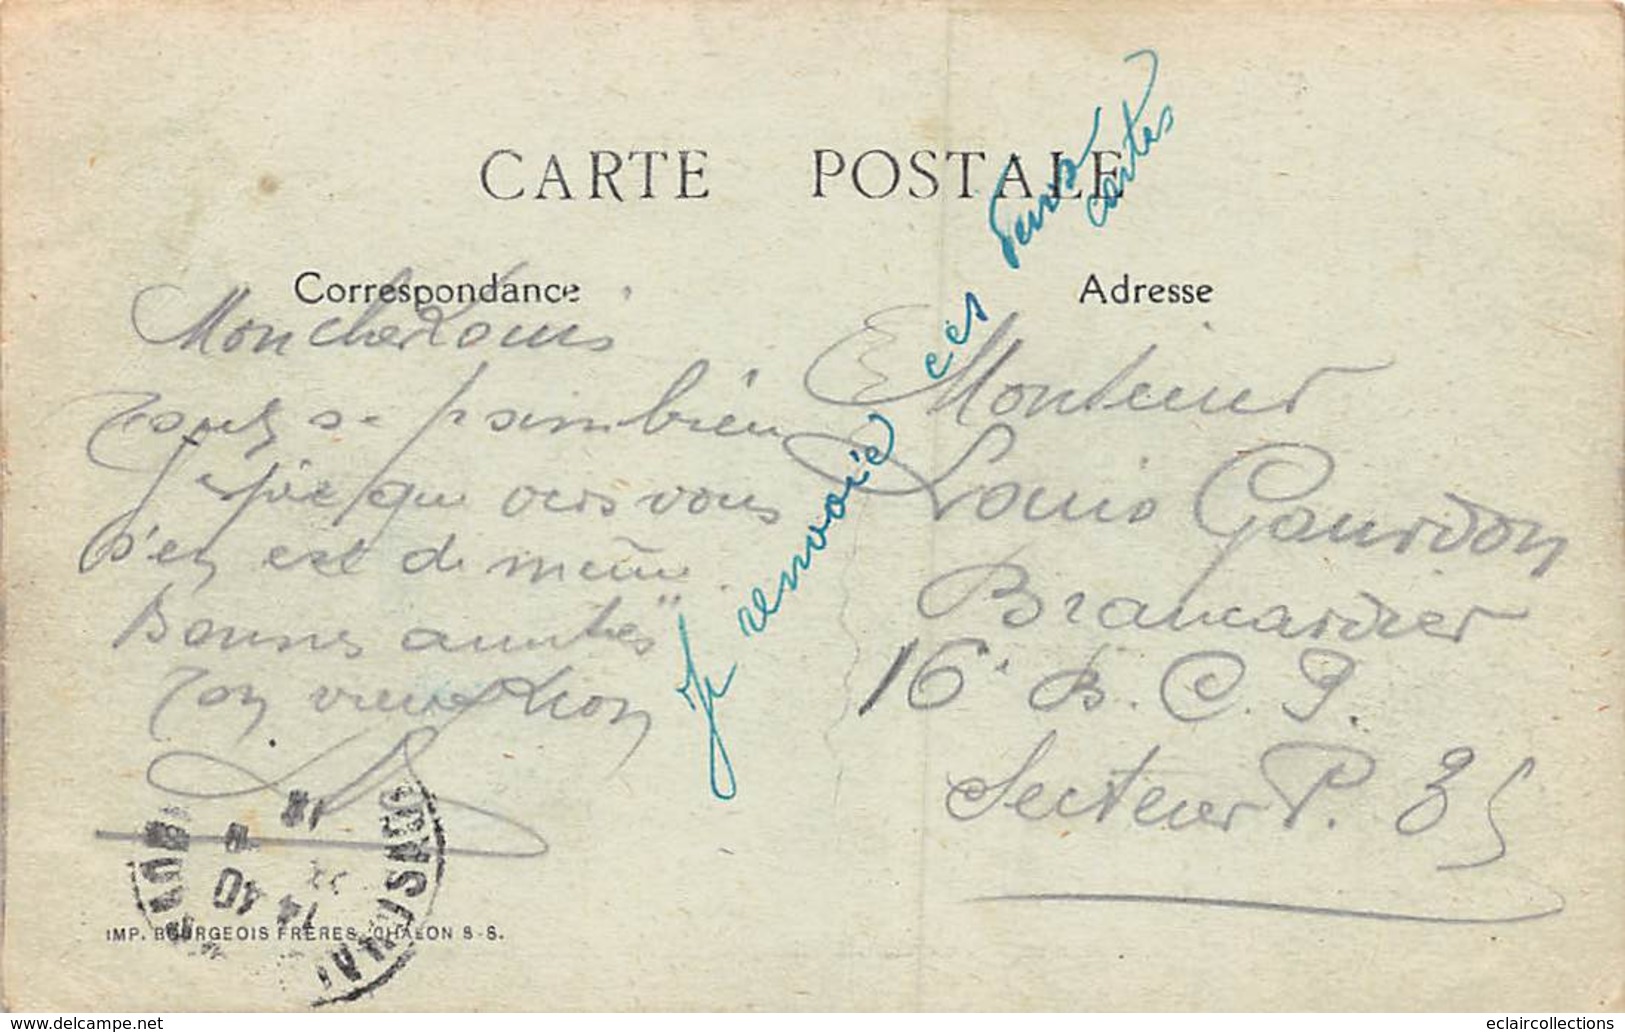 CARTE POSTALE
Correspondance
Mon cher Louis
se passe bien
J'espère que vers vous
s'en est de même.
Bonnes amitiés
Ton vieux Léon
Je renvoie ces deux
cartes
Adresse
Monsieur
Louis Gourdon
Brancardier
16e B. C. P.
Secteur P. 35
IMP. BOURGEOIS FRÈRES, CHALON S-S.
www.delcampe.net
eclaircollections